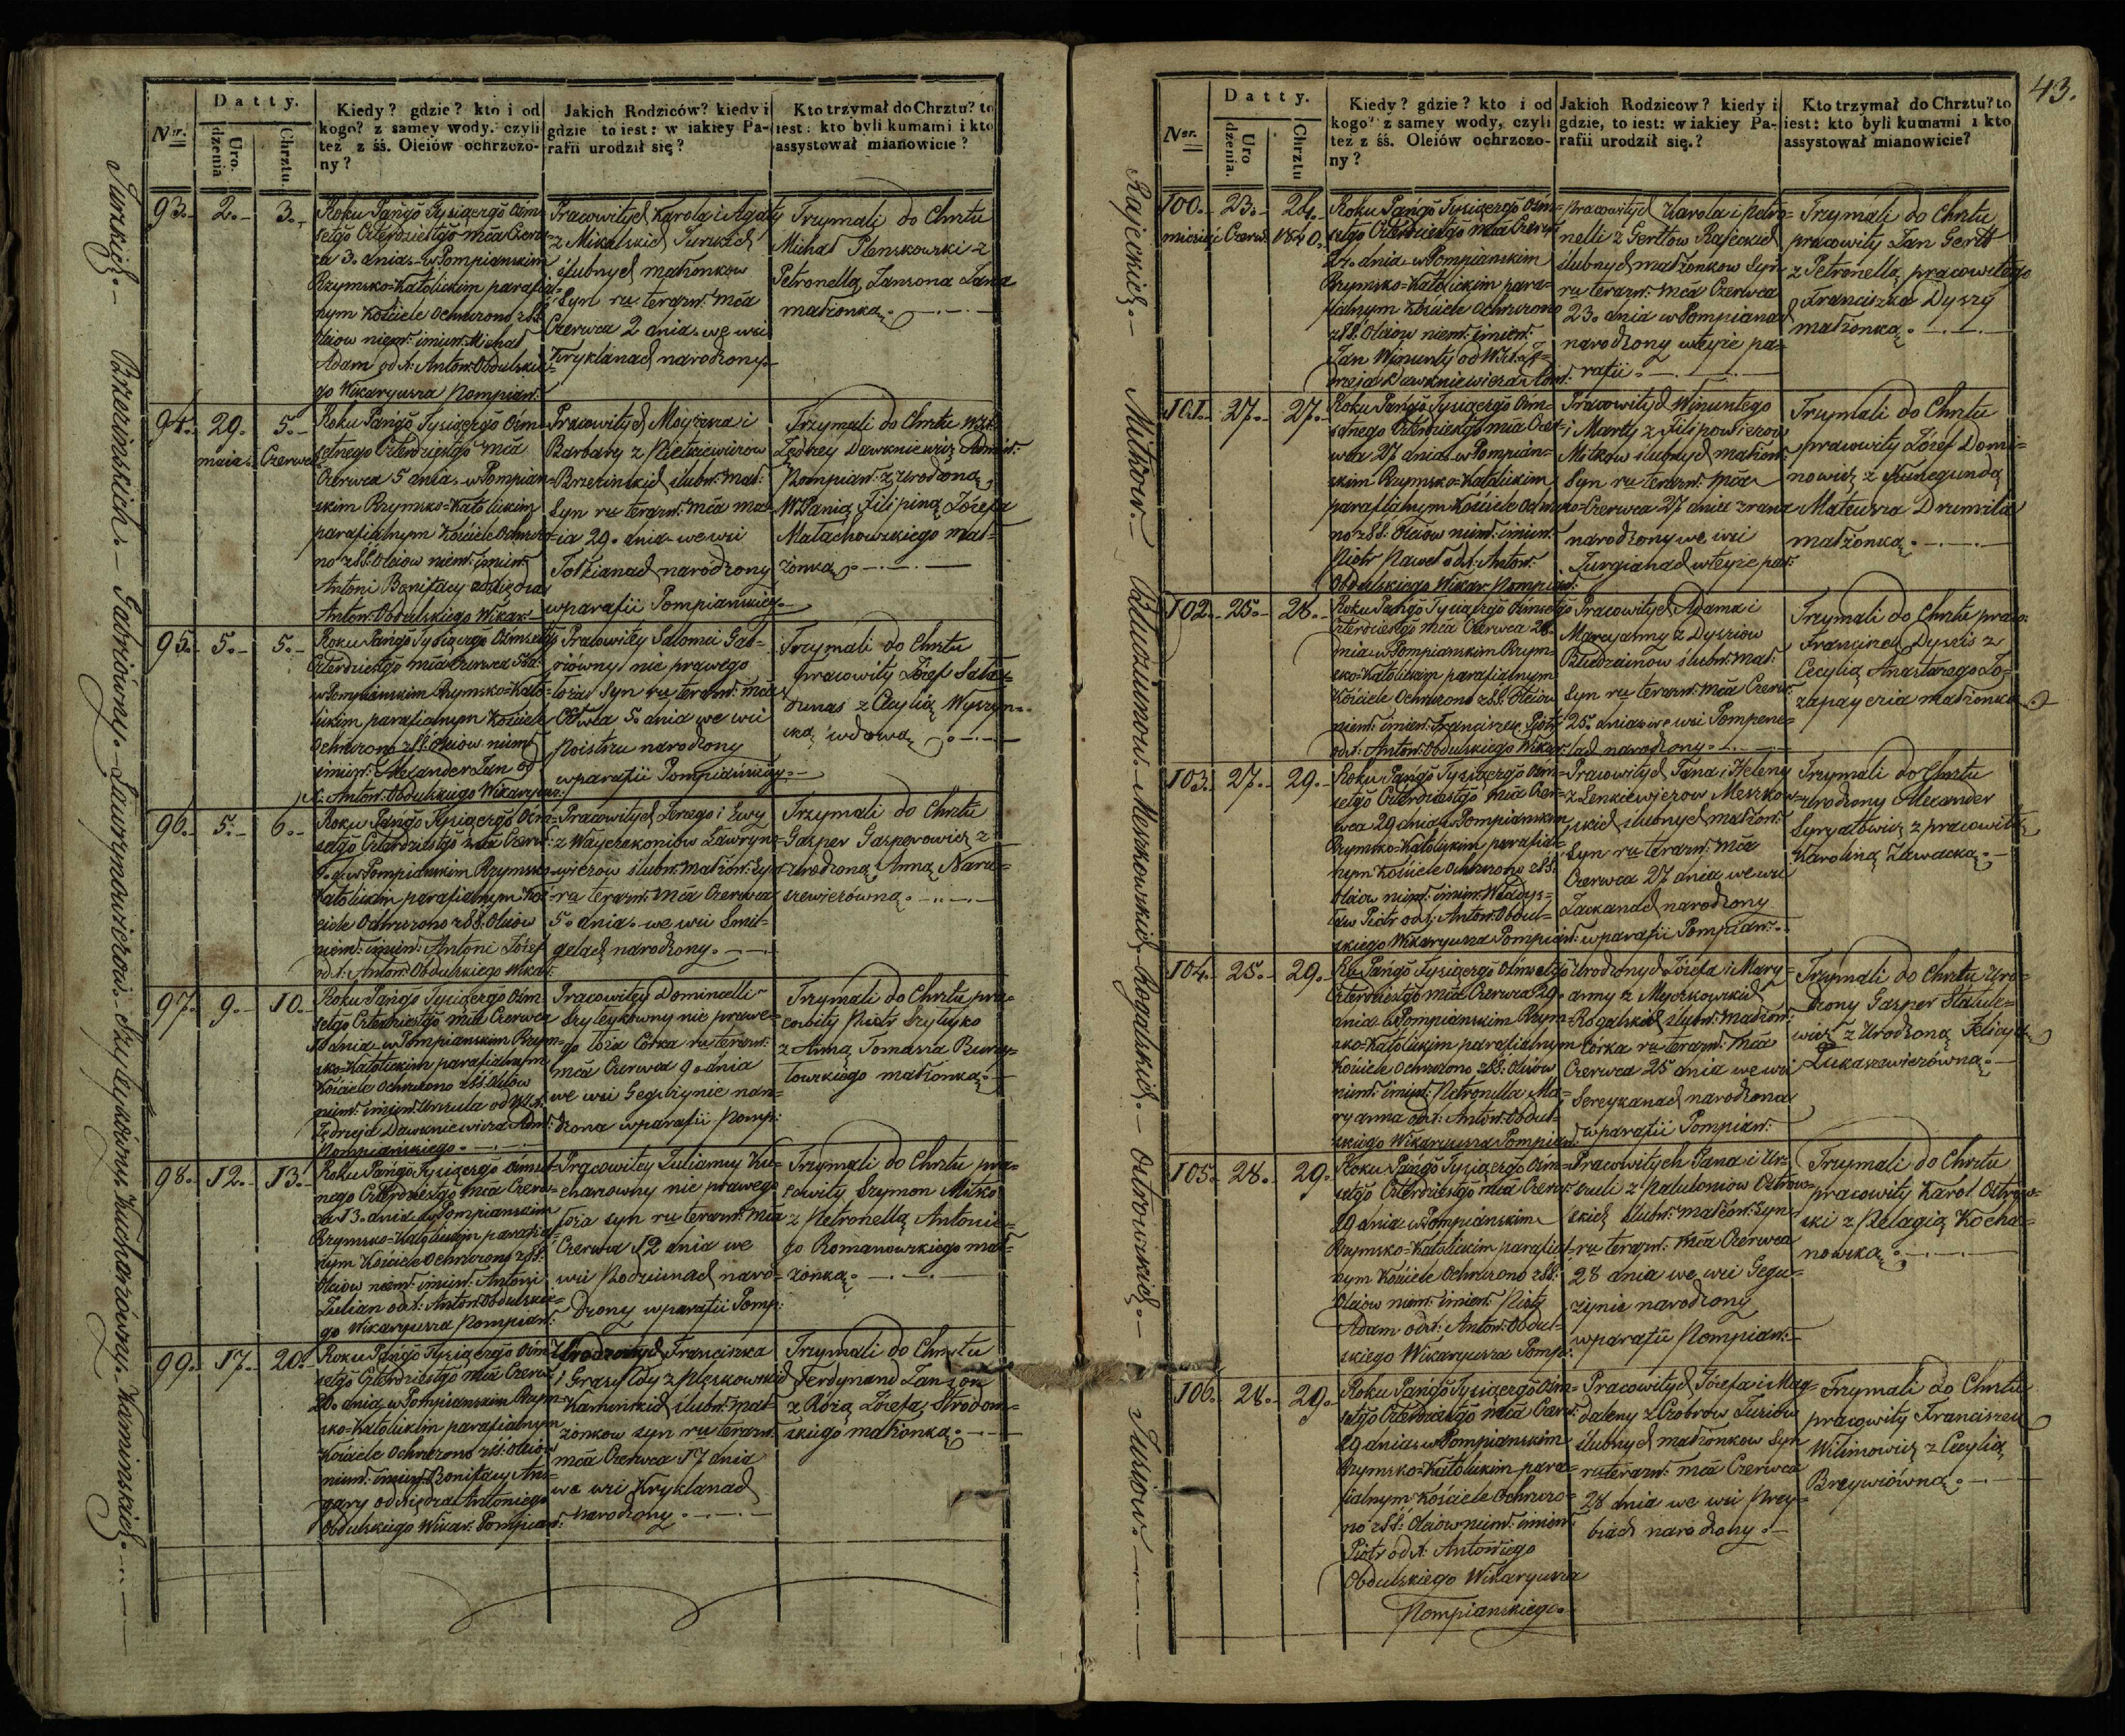 Nr.
Datty.
Uro-
dzenia
Chrztu.
Kiedy? gdzie? kto i od
kogo? z samey wody, czyli
też z śś. Oleiów ochrzczo-
ny?
Jakich Rodziców? kiedy i
gdzie to iest: w iakiey Pa-
rafii urodził się?
Kto trzymał do Chrztu? to
iest: kto byli kumami i kto
assystował mianowicie?
93.
2.
3.
Roku Pańgo Tysiącgo Ośm-
setgo Czterdziestgo mca Czerw-
ca 3. dnia w Pompianskim
Rzymsko-Katolickim parafial-
nym Kościele Ochrzczono z SS.
Oleiow niemł. imien. Michał
Adam od X. Anton. Obdulskie-
go Wikaryusza Pompian.
Pracowitych Karola i Agaty
z Mikalskich Turskich
ślubnych małżonkow
Syn ru terazn. mca
Czerwca 2 dnia we wsi
Kryklanach narodzony
Trzymali do Chrztu
Michał Plenskowski z
Petronellą Jansona Jana
małżonką.
94.
29.
maia
5.
Czerwca
Roku Pańgo Tysiącgo Ośm-
setnego Czterdziestgo mca
Czerwca 5 dnia w Pompian-
skim Rzymsko-Katolickim
parafialnym Kościele Ochrzczo-
no z SS. Oleiow niemł. imien.
Antoni Bonifacy od Xiędza
Anton. Obdulskiego Wikar.
Pracowitych Moyżesza i
Barbary z Pietkiewiczow
Brzezinskich ślubn. mał.
Syn ru terazn. mca ma-
ia 29. dnia we wsi
Tolkianach narodzony
w parafii Pompianskiey
Trzymali do Chrztu WJX.
Jędrzey Dawkniewicz Admin.
Pompian. z urodzoną
W. Panią Filipiną Józefa
Małachowskiego mał-
żonką.
95.
5.
5.
Roku Pańgo Tysiącgo Ośmsetgo
Czterdziestgo mca Czerwca 5 d.
w Pompianskim Rzymsko-Kato-
lickim parafialnym Kościele
Ochrzczono z SS. Oleiow niemł.
imien. Alexander Jan od
X. Anton. Obdulskiego Wikaryusz.
Pracowitey Salomei Gab-
riówny nie prawego
łoża Syn ru terazn. mca
Czerwca 5. dnia we wsi
Poistru narodzony
w parafii Pompianskiey
Trzymali do Chrztu
pracowity Józef Saba-
dunas z Cecylią Wyszyn-
ską wdową
96.
5.
6.
Roku Pańgo Tysiącgo Ośm-
setgo Czterdziestgo mca Czerw.
6. d. w Pompianskim Rzymsko-
Katolickim parafialnym Koś-
ciele Ochrzczono z SS. Oleiow
niemł. imien. Antoni Józef
od X. Anton. Obdulskiego Wikar.
Pracowitych Jerzego i Ewy
z Wayczakoniów Ławryno-
wiczow ślubn. małżon. Syn
ru terazn. mca Czerwca
5. dnia we wsi Smil-
gelach narodzony.
Trzymali do Chrztu
Gasper Gasperowicz z
urodzoną Anną Naru-
szewiczówną.
97.
9.
10.
Roku Pańgo Tysiącgo Ośm-
setgo Czterdziestgo mca Czerwca
10 dnia w Pompianskim Rzym-
sko-Katolickim parafialnym
Kościele Ochrzczono z SS. Oleiow
niemł. imien. Urszula od WJX.
Jędrzeja Dawkniewicza Adm.
Pompianskiego.
Pracowitey Dominicelli
Szyleykówny nie prawe-
go łoża Córka ru terazn.
mca Czerwca 9 dnia
we wsi Gegużynie naro-
dzona w parafii Pomp.
Trzymali do Chrztu pra-
cowity Piotr Szyleyko
z Anną Tomasza Burny-
łowskiego małżonką.
98.
12.
13.
Roku Pańgo Tysiącgo Ośmset-
nego Czterdziestgo mca Czerw-
ca 13. dnia w Pompianskim
Rzymsko-Katolickim parafial-
nym Kościele Ochrzczono z SS.
Oleiow niemł. imien. Antoni
Julian od X. Anton. Obdulskie-
go Wikaryusza Pompian.
Pracowitey Julianny Ku-
charowny nie prawego
łoża syn ru terazn. mca
Czerwca 12 dnia we
wsi Podziunach naro-
dzony w parafii Pomp.
Trzymali do Chrztu pra-
cowity Szymon Mitko
z Petronellą Antonie-
go Romanowskiego mał-
żonką.
99.
17.
20.
Roku Pańgo Tysiącgo Ośm-
setgo Czterdziestgo mca Czerw.
20. dnia w Pompianskim Rzym-
sko-Katolickim parafialnym
Kościele Ochrzczono z SS. Oleiow
niemł. imien. Bonifacy
od Xiędza Antoniego
Obdulskiego Wikar. Pompian.
Urodzonych Franciszka
i Grasyldy z Pleskowskich
Kaminskich ślubn. mał-
żonkow syn ru terazn.
mca Czerwca 17 dnia
we wsi Kryklanach
narodzony.
Trzymali do Chrztu
Ferdynand Janson
z Różą Józefa Strodom-
skiego małżonką.
Turskich. Brzezinskich. Gabriówny. Ławrynowiczow. Szyleykówny. Kucharówny. Kaminskich.
43.
Nr.
Datty.
Uro-
dzenia.
Chrztu
Kiedy? gdzie? kto i od
kogo? z samey wody, czyli
też z śś. Oleiów ochrzczo-
ny?
Jakich Rodziców? kiedy i
gdzie, to iest: w iakiey Pa-
rafii urodził się.?
Kto trzymał do Chrztu? to
iest: kto byli kumami i kto
assystował mianowicie?
100.
23.
24.
miesiąc Czerw. 1840.
Roku Pańgo Tysiącgo Ośm-
setgo Czterdziestgo mca Czerwca
24. dnia w Pompianskim
Rzymsko-Katolickim para-
fialnym Kościele Ochrzczono
z SS. Oleiow niemł. imien.
Jan Wincenty od WJX. Ję-
drzeja Dawkniewicza Adm.
Pracowitych Karola i Petro-
nelli z Gerttow Rajeckich
ślubnych małżonkow Syn
ru terazn. mca Czerwca
23. dnia w Pompianach
narodzony w teyże pa-
rafii.
Trzymali do Chrztu
pracowity Jan Gertt
z Petronellą pracowitego
Franciszka Dyszy
małżonką.
101.
27.
27.
Roku Pańgo Tysiącgo Ośm-
setnego Czterdziestgo mca Czer-
wca 27 dnia w Pompian-
skim Rzymsko-Katolickim
parafialnym Kościele Ochrzczo-
no z SS. Oleiow niemł. imien.
Piotr Paweł od X. Anton.
Obdulskiego Wikar. Pompian.
Pracowitych Wincentego
i Marty z Filipowiczow
Mitkow ślubnych małżon.
Syn ru terazn. mca
Czerwca 27 dnia zrana
narodzony we wsi
Jurgianach w teyże par.
Trzymali do Chrztu
pracowity Józef Domi-
nowicz z Kunegundą
Mateusza Drumsila
małżonką.
102.
25.
28.
Roku Pańgo Tysiącgo Ośmsetgo
Czterdziestgo mca Czerwca 28.
dnia w Pompianskim Rzym-
sko-Katolickim parafialnym
Kościele Ochrzczono z SS. Oleiow
niemł. imien. Franciszek Piotr
od X. Anton. Obdulskiego Wikar.
Pracowitych Adama i
Maryanny z Dysziow
Bludziunow ślubn. mał.
Syn ru terazn. mca Czerw.
25. dnia we wsi Pompene-
lach narodzony.
Trzymali do Chrztu praco.
Franciszek Dyszis z
Cecylią Anastazego Ło-
zapayczia małżonką
103.
27.
29.
Roku Pańgo Tysiącgo Ośm-
setgo Czterdziestgo mca Czer-
wca 29 dnia w Pompianskim
Rzymsko-Katolickim parafial-
nym Kościele Ochrzczono z SS.
Oleiow niemł. imien. Władys-
ław Piotr od X. Anton. Obdul-
skiego Wikaryusza Pompian.
Pracowitych Jana i Heleny
z Lenkiewiczow Meszkow-
skich ślubnych małżon.
Syn ru terazn. mca
Czerwca 27 dnia we wsi
Zackanach narodzony
w parafii Pompian.
Trzymali do Chrztu
urodzony Alexander
Syryatowicz z pracowitą
Karoliną Zawacką.
104.
25.
29.
Ru Pańgo Tysiącgo Ośmsetgo
Czterdziestgo mca Czerwca 29.
dnia w Pompianskim Rzym-
sko-Katolickim parafialnym
Kościele Ochrzczono z SS. Oleiow
niemł. imien. Petronella Ma-
ryanna od X. Anton. Obdul-
skiego Wikaryusza Pompian.
Urodzonych Józefa i Mary-
anny z Myczkowskich
Rogalskich ślubn. małżon.
Córka ru terazn. mca
Czerwca 25 dnia we wsi
Sereykanach narodzona
w parafii Pompian.
Trzymali do Chrztu uro-
dzony Gasper Statule-
wicz z Urodzoną Felicyą
Łukaszewiczówną.
105.
28.
29.
Roku Pańgo Tysiącgo Ośm-
setgo Czterdziestgo mca Czerw.
29 dnia w Pompianskim
Rzymsko-Katolickim parafial-
nym Kościele Ochrzczono z SS.
Oleiow niemł. imien. Piotr
Adam od X. Anton. Obdul-
skiego Wikaryusza Pomp.
Pracowitych Jana i Ur-
szuli z Paluloniow Ostrow-
skich ślubn. małżon. Syn
ru terazn. mca Czerwca
28 dnia we wsi Gegu-
żynie narodzony
w parafii Pompian.
Trzymali do Chrztu
pracowity Karol Ostrow-
ski z Pelagią Kocha-
nowską.
106.
28.
29.
Roku Pańgo Tysiącgo Ośm-
setgo Czterdziestgo mca Czerw.
29 dnia w Pompianskim
Rzymsko-Katolickim para-
fialnym Kościele Ochrzczo-
no z SS. Oleiow niemł. imien.
Piotr od X. Antoniego
Obdulskiego Wikaryusza
Pompianskiego.
Pracowitych Józefa i Mag-
daleny z Czobrow Tusiow
ślubnych małżonkow Syn
ru terazn. mca Czerwca
28 dnia we wsi Przy-
biach narodzony.
Trzymali do Chrztu
pracowity Franciszek
Wilimowicz z Cecylią
Breywiówną.
Rajeckich. Mitkow. Bludziunow. Meszkowskich. Rogalskich. Ostrowskich. Tusiow.